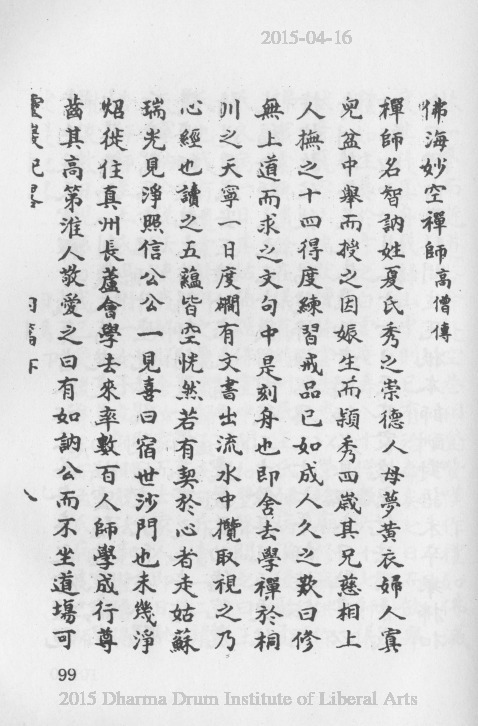 2015-04-16
佛海妙空禪師高僧傳
禪師名智訥姓夏氏秀之崇德人母夢黃衣婦人寘
兒盆中舉而授之因娠生而頴秀四歲其兄慈相上
人撫之十四得度練習戒品已如成人久之歎曰修
無上道而求之文句中是刻舟也即舍去學禪於桐
川之天寧一日度澗有文書出流水中攬取視之乃
心經也讀之五蘊皆空恍然若有契於心者走姑蘇
瑞光見淨照信公公一見喜曰宿世沙門也未幾淨
炤徙住真州長蘆會學去來率數百人師學成行尊
齒其高第淮人敬愛之曰有如訥公而不坐道場可
靈巖記畧
99
2015 Dharma Drum Institute of Liberal Arts